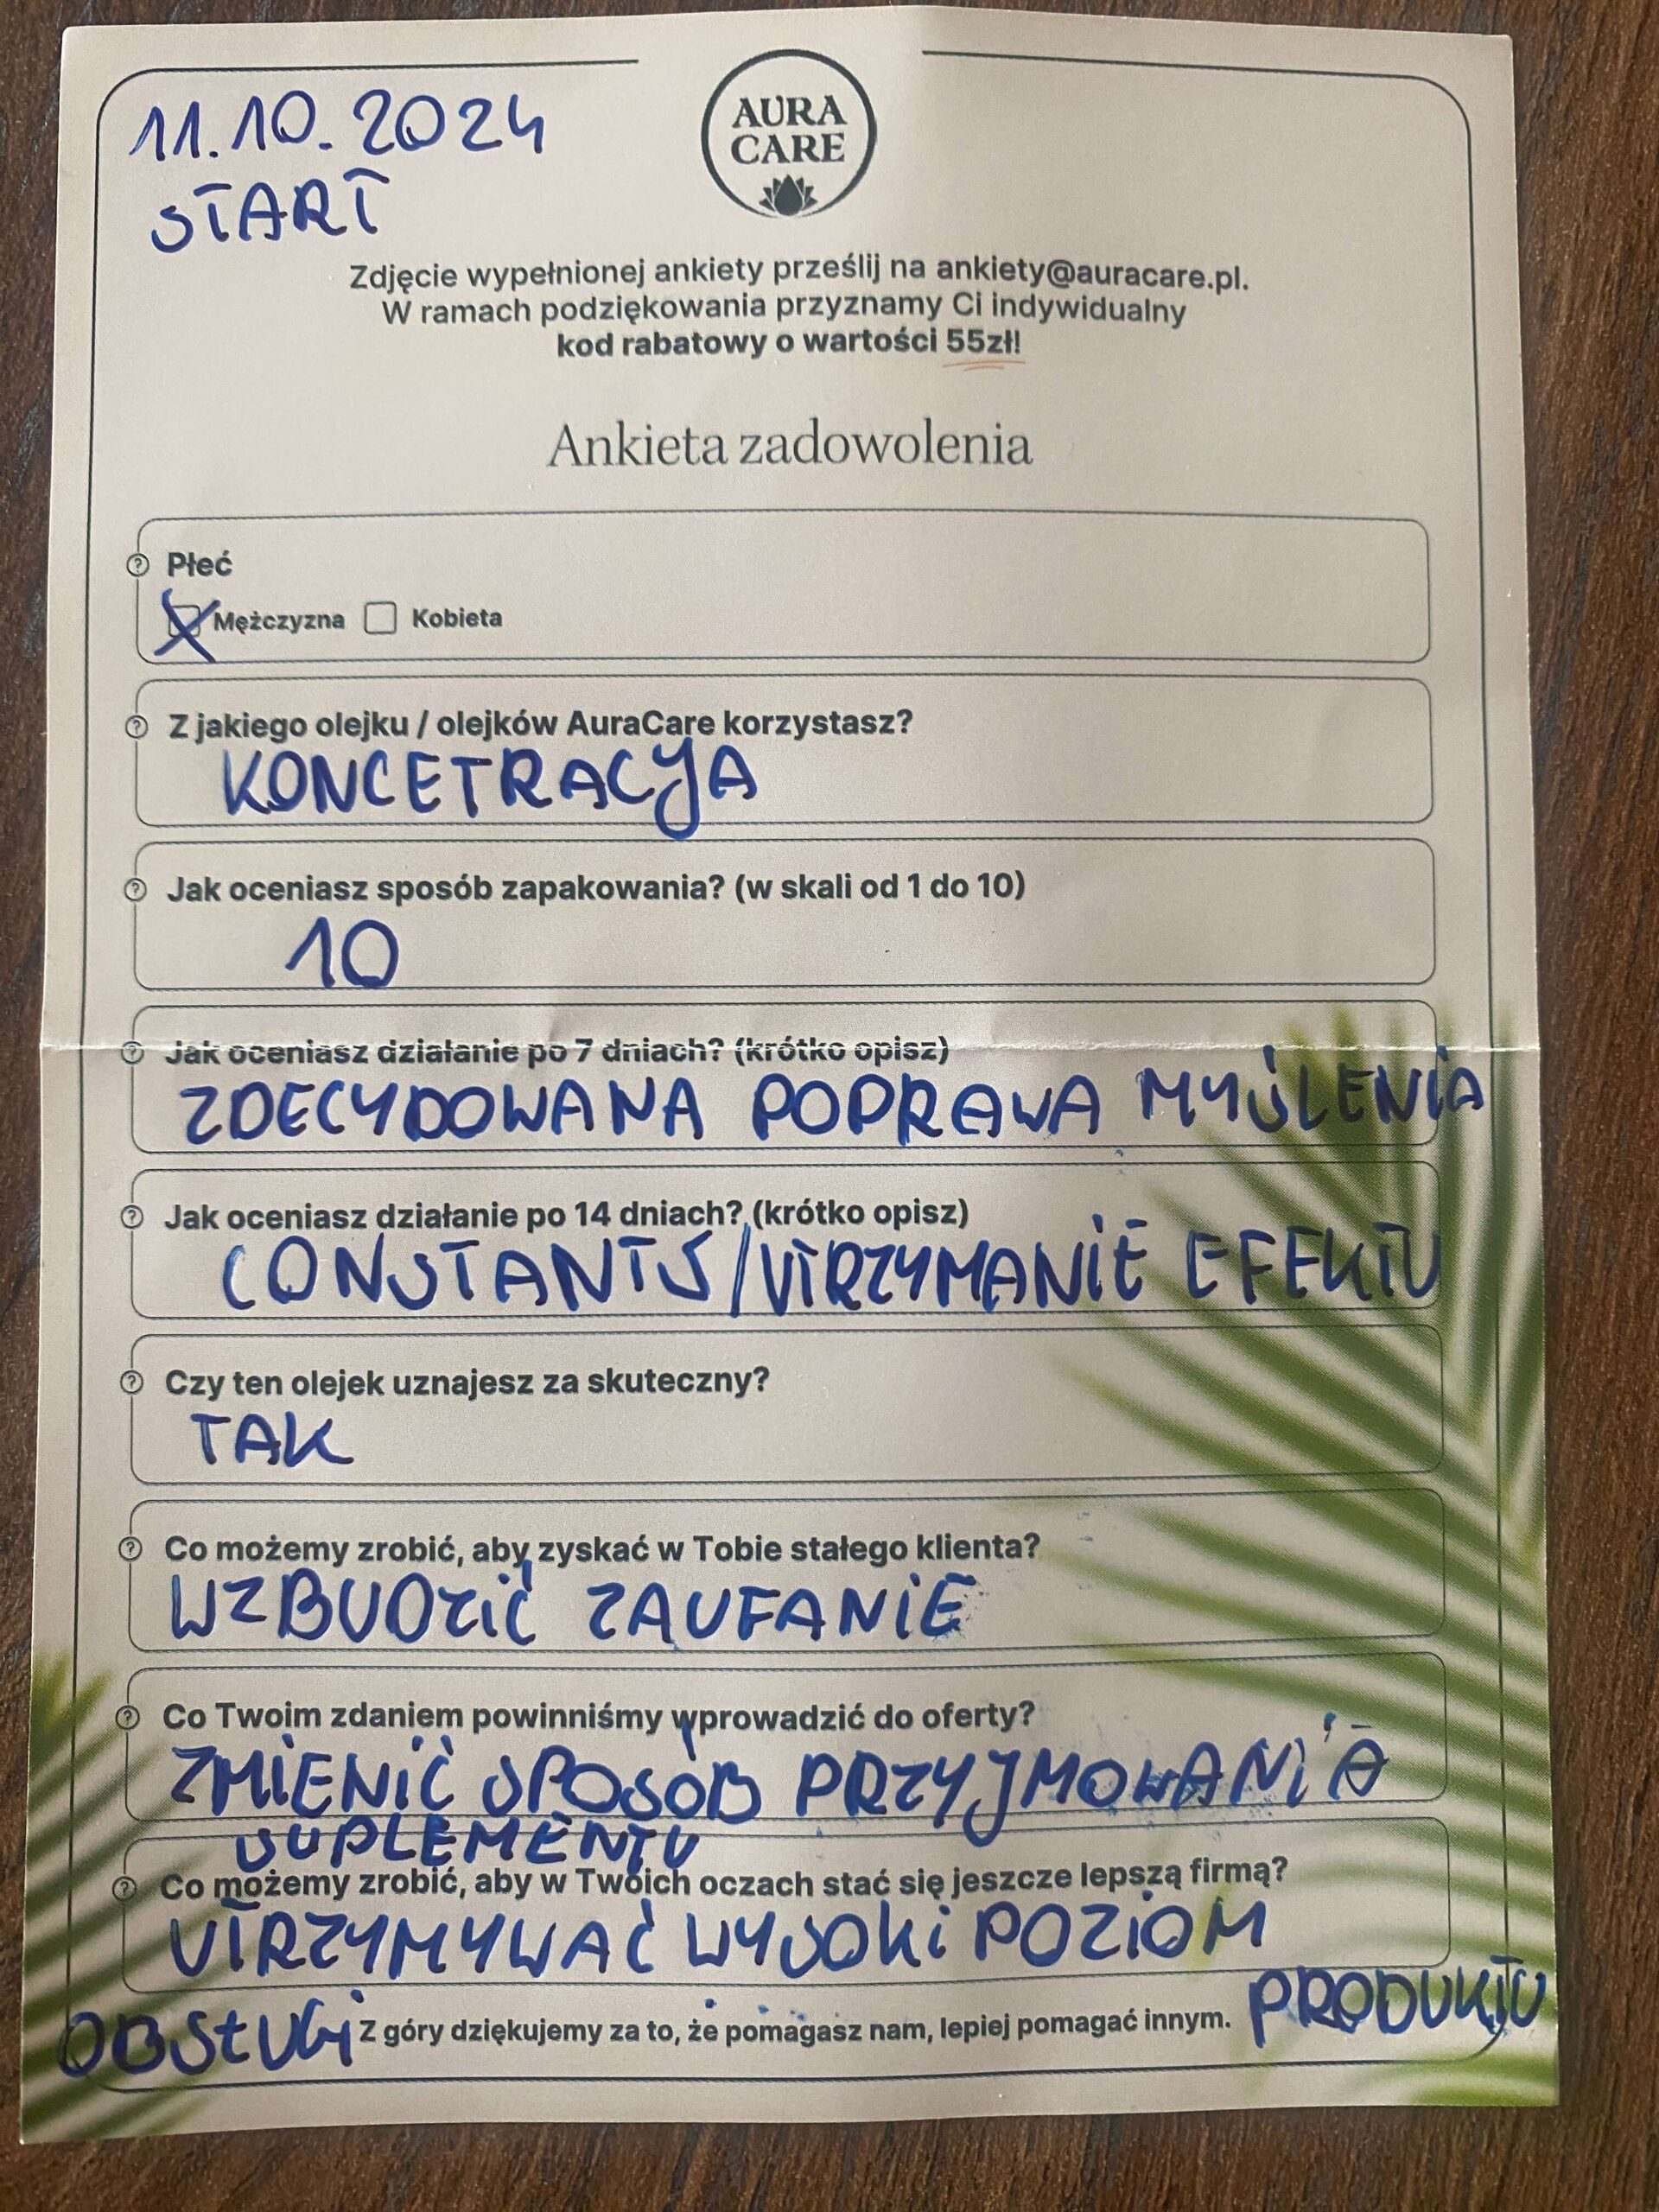 11.10.2024
START
AURA
CARE
Zdjęcie wypełnionej ankiety prześlij na ankiety@auracare.pl.
W ramach podziękowania przyznamy Ci indywidualny
kod rabatowy o wartości 55zł!
Ankieta zadowolenia
Płeć
Mężczyzna Kobieta
Z jakiego olejku / olejków AuraCare korzystasz?
KONCETRACJA
Jak oceniasz sposób zapakowania? (w skali od 1 do 10)
10
Jak oceniasz działanie po 7 dniach? (krótko opisz)
ZDECYDOWANA POPRAWA MYŚLENIA
Jak oceniasz działanie po 14 dniach? (krótko opisz)
CONSTANTS/UTRZYMANIE EFEKTU
Czy ten olejek uznajesz za skuteczny?
TAK
Co możemy zrobić, aby zyskać w Tobie stałego klienta?
WZBUDZIĆ ZAUFANIE
Co Twoim zdaniem powinniśmy wprowadzić do oferty?
ZMIENIĆ SPOSÓB PRZYJMOWANIA
SUPLEMENTU
Co możemy zrobić, aby w Twoich oczach stać się jeszcze lepszą firmą?
UTRZYMYWAĆ WYSOKI POZIOM
OBSŁUGI Z góry dziękujemy za to, że pomagasz nam, lepiej pomagać innym. PRODUKTU